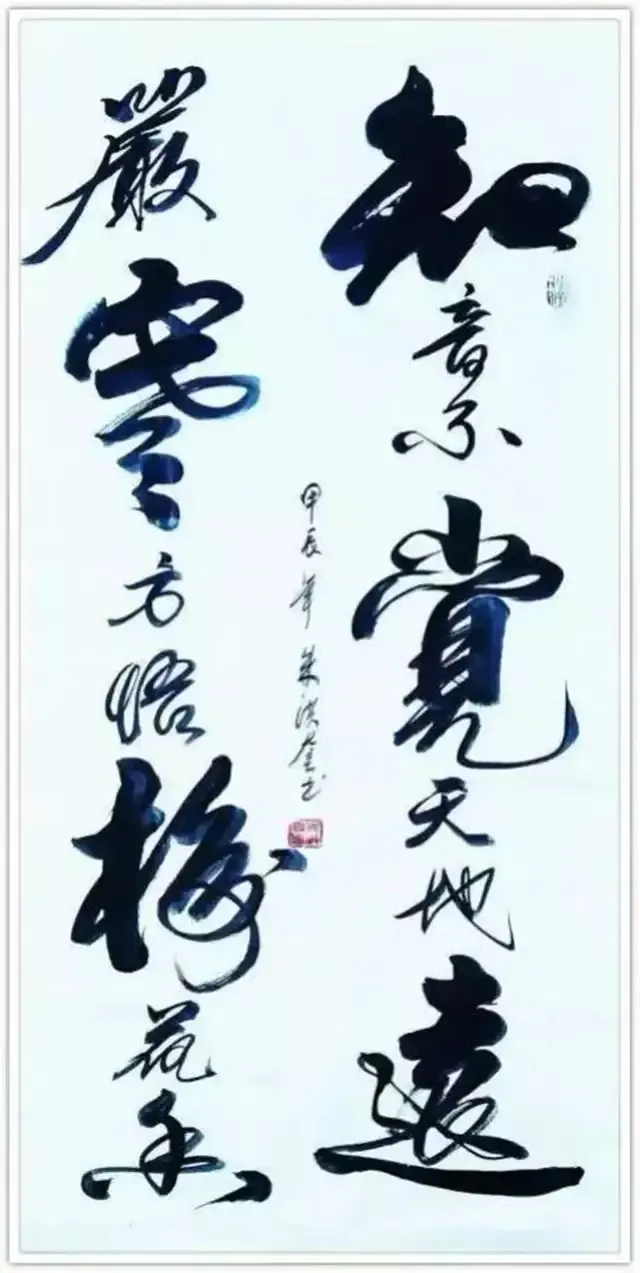 知音不覺天地遠
嚴寒方悟梅花香
甲辰年 朱洪书